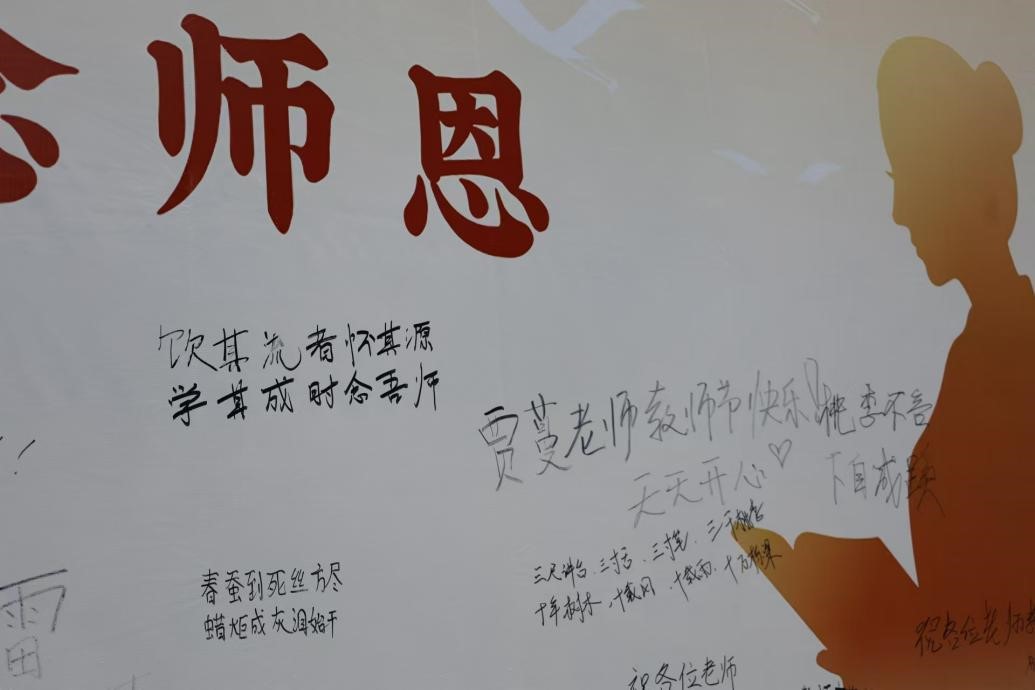 念师恩
饮其流者怀其源
学其成时念吾师
贾蔓老师教师节快乐!
天天开心♡
桃李不言
下自成蹊
三尺讲台、三寸舌、三寸笔、三千桃李
十年树木、十载风、十载雨、十万栋梁
春蚕到死丝方尽
蜡炬成灰泪始干
雷
祝各位老师
祝各位老师